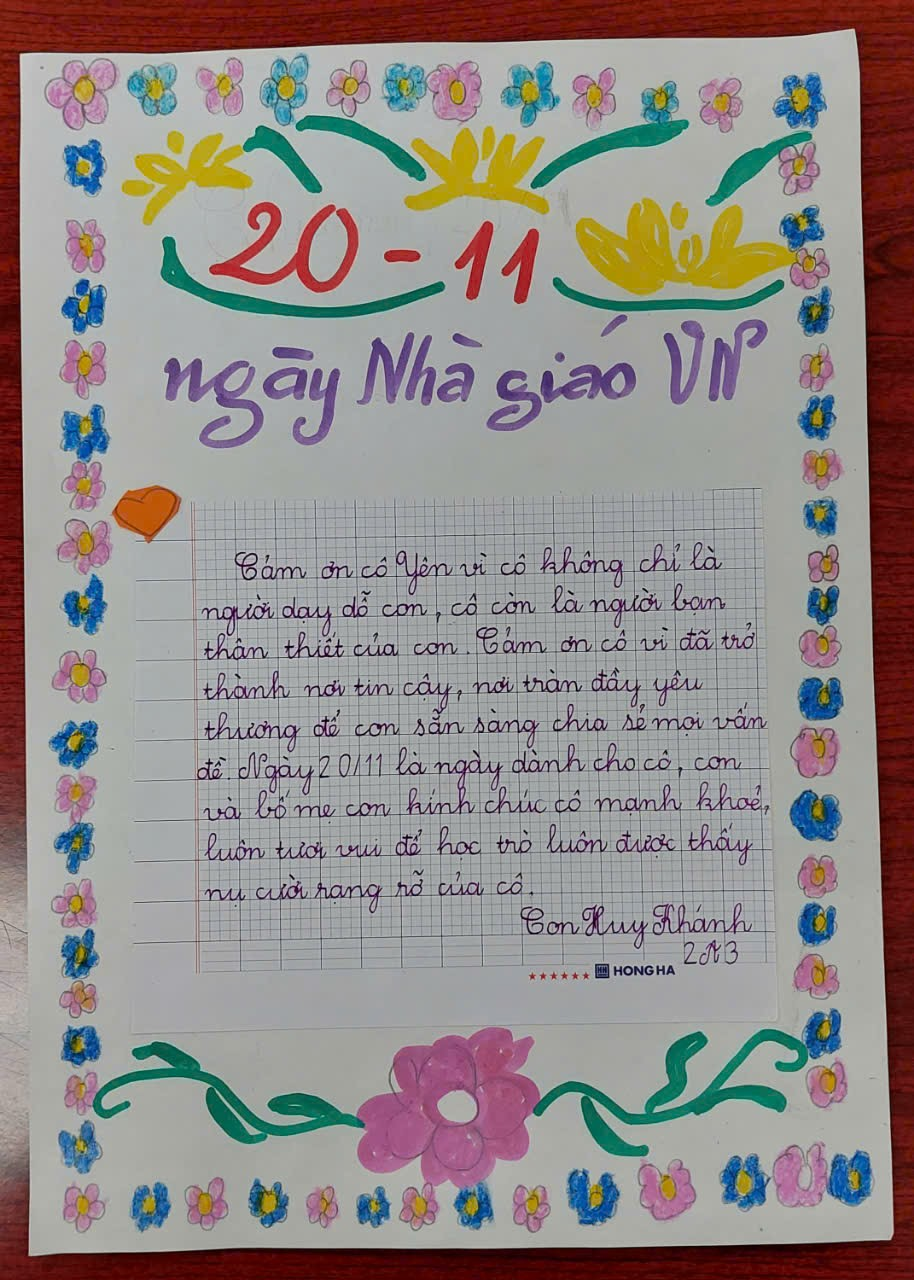 20 - 11
ngày Nhà giáo VN
Cảm ơn cô Yên vì cô không chỉ là
người dạy dỗ con, cô còn là người bạn
thân thiết của con. Cảm ơn cô vì đã trở
thành nơi tin cậy, nơi tràn đầy yêu
thương để con sẵn sàng chia sẻ mọi vấn
đề. Ngày 20/11 là ngày dành cho cô, con
và bố mẹ con kính chúc cô mạnh khoẻ,
luôn tươi vui để học trò luôn được thấy
nụ cười rạng rỡ của cô.
Con Huy Khánh
2A3
HONG HA